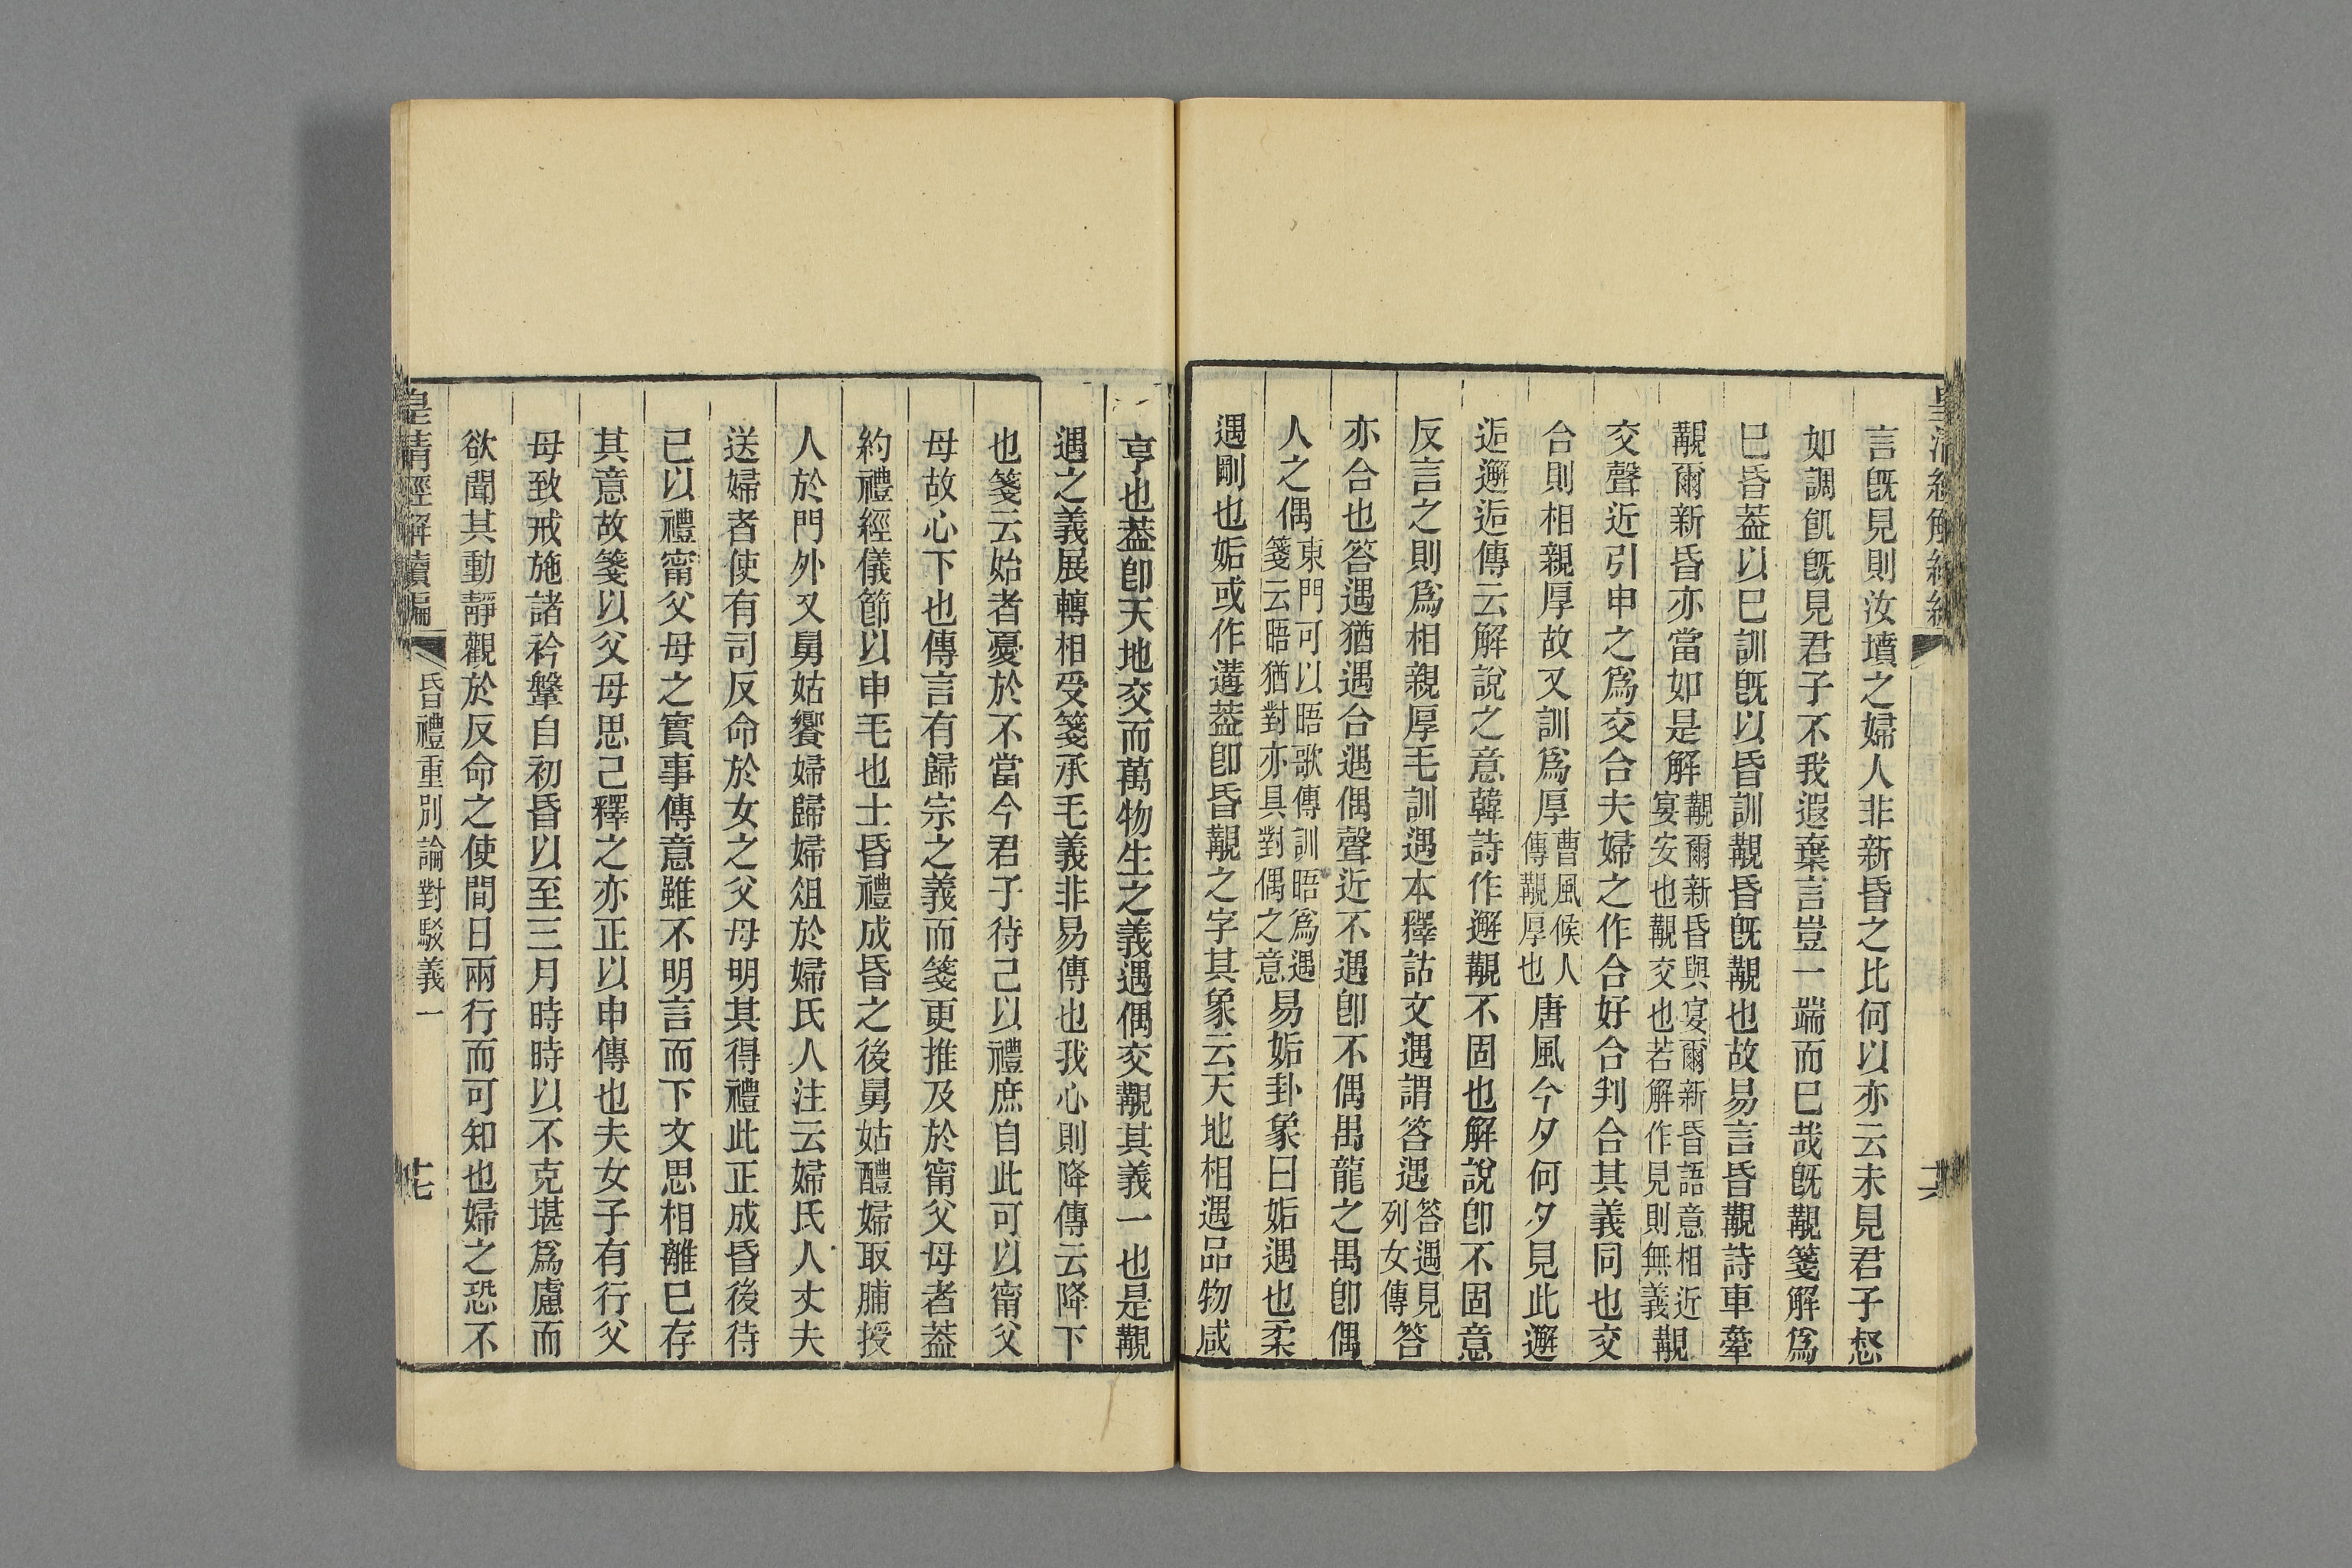 言既見則汝墳之婦人非新昏之比何以亦云未見君子惄
如調飢既見君子不我遐棄言豈一端而巳哉既覯箋解爲
巳昏葢以巳訓既以昏訓覯昏既覯也故易言昏覯詩車舝
覯爾新昏亦當如是解覯爾新昏與宴爾新昏語意相近宴安也覯交也若解作見則無義覯
交聲近引申之爲交合夫婦之作合好合判合其義同也交
合則相親厚故又訓爲厚曹風候人傳覯厚也唐風今夕何夕見此邂
逅邂逅傳云解說之意韓詩作邂覯不固也解說卽不固意
反言之則爲相親厚毛訓遇本釋詁文遇謂荅遇荅遇見列女傳荅
亦合也荅遇猶遇合遇偶聲近不遇卽不偶禺龍之禺卽偶
人之偶東門可以晤歌傳訓晤爲遇箋云晤猶對亦具對偶之意易姤卦彖曰姤遇也柔
遇剛也姤或作遘葢卽昏覯之字其象云天地相遇品物咸
亨也葢卽天地交而萬物生之義遇偶交覯其義一也是覯
遇之義展轉相受箋承毛義非易傳也我心則降傳云降下
也箋云始者憂於不當今君子待己以禮庶自此可以甯父
母故心下也傳言有歸宗之義而箋更推及於甯父母者葢
約禮經儀節以申毛也士昏禮成昏之後舅姑醴婦取脯授
人於門外又舅姑饗婦歸婦俎於婦氏人注云婦氏人丈夫
送婦者使有司反命於女之父母明其得禮此正成昏後待
已以禮甯父母之實事傳意雖不明言而下文思相離巳存
其意故箋以父母思己釋之亦正以申傳也夫女子有行父
母致戒施諸衿鞶自初昏以至三月時時以不克堪爲慮而
欲聞其動靜觀於反命之使間日兩行而可知也婦之恐不
皇清經解續編
昏禮重別論對駁義一